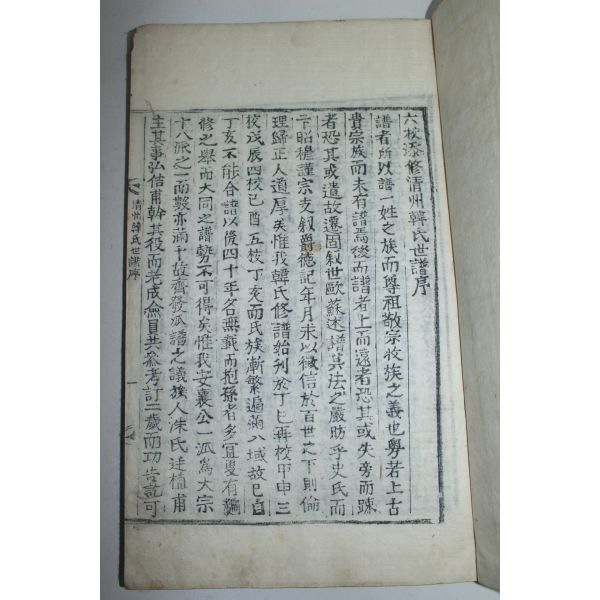 六校添修淸州韓氏世譜序
譜者所以譜一姓之族而尊祖敬宗收族之義也粤若上古
貴宗族而未有譜焉後而譜者上而遠者恐其或失旁而踈
者恐其或遺故遷固叙世歐蘇述譜其法之嚴昉乎史氏而
下昭穆謹宗支叙爵德記年月末以徵信於百世之下則倫
理歸正人道厚矣惟我韓氏修譜始刋於丁巳再校甲申三
校戊辰四校己酉五校丁亥而氏族漸繁遍滿八域故已自
丁亥不能合譜以後四十年名無載而抱孫者多宜更有
修之擧而大同之譜勢不可得矣惟我安襄公一派爲大宗
十八派之一而數亦滿千故齊發派譜之議族人洙氏廷植甫
主其事弘佶甫幹其役而老成僉員共參考訂二歲而功告訖可
淸州韓氏世譜序
一